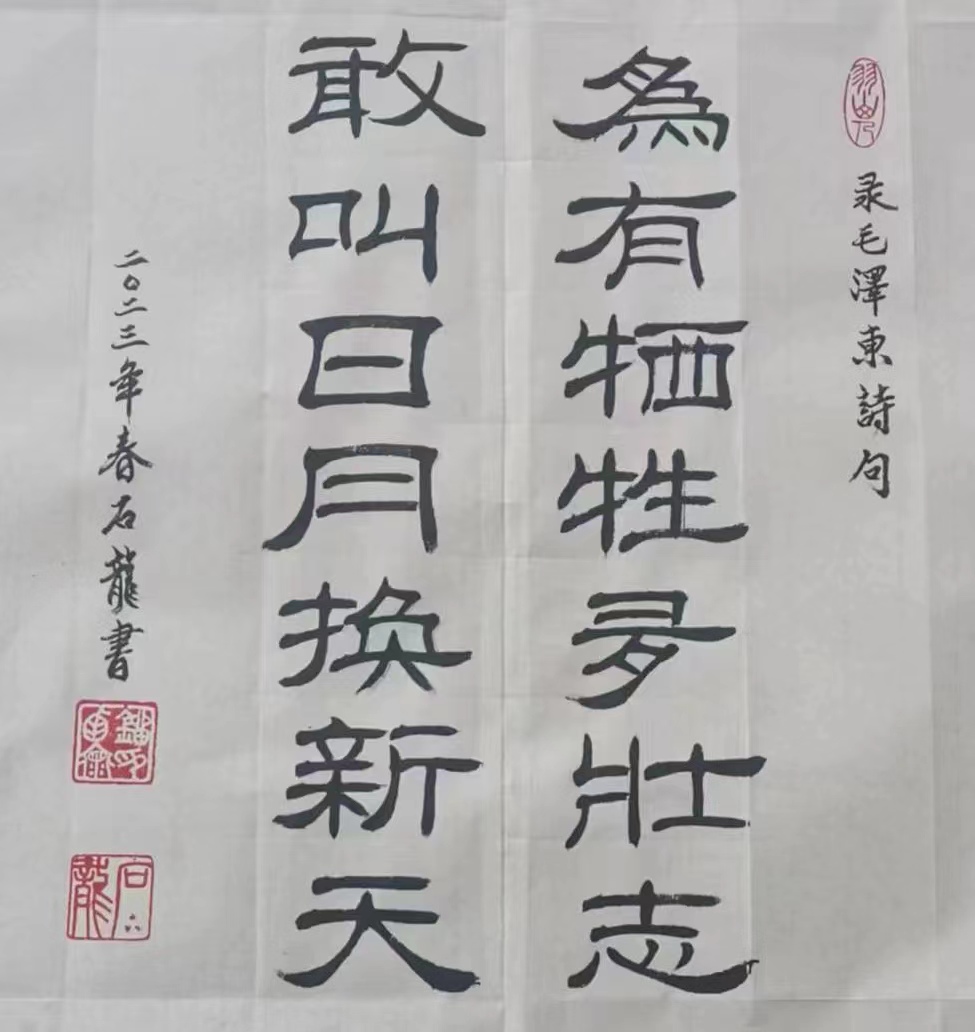 录毛澤東詩句
為有牺牲多壯志
敢叫日月换新天
二〇二三年春石龍書
石龍